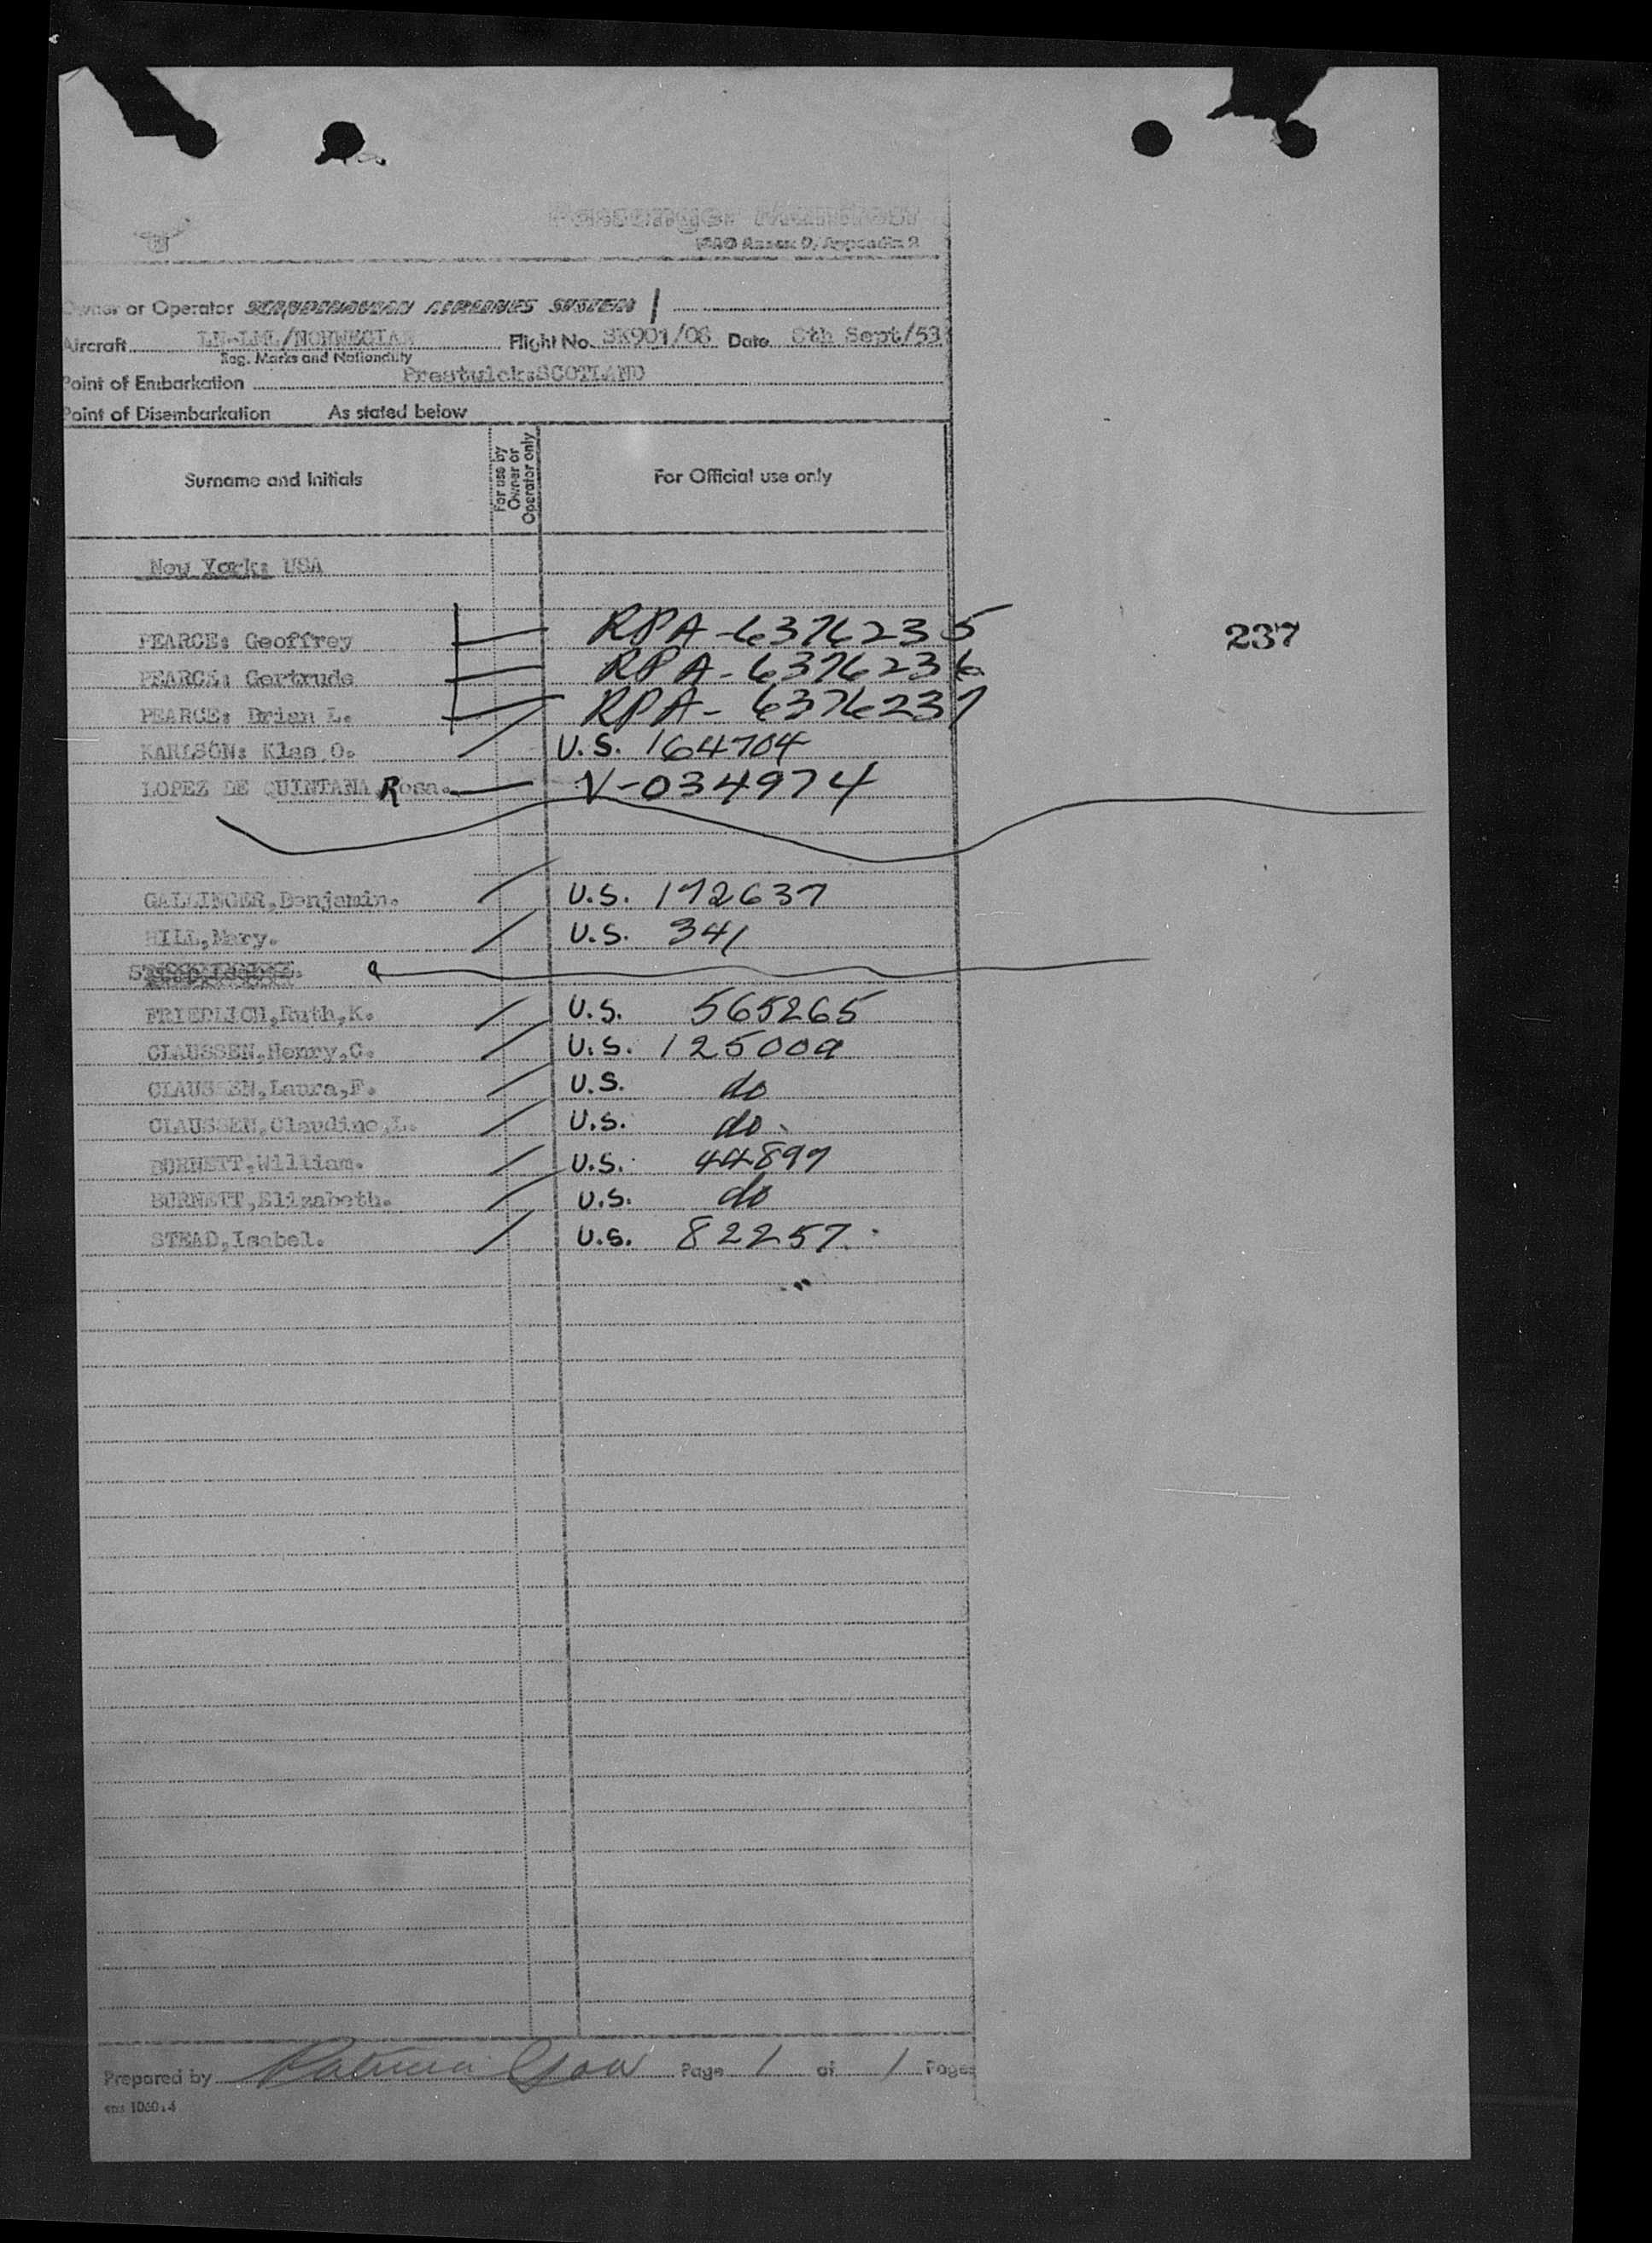 Passenger Manifest
ICAO Annex 9, Appendix 2
Owner or Operator SCANDINAVIAN AIRLINES SYSTEM
Aircraft LN-LML/NORWEGIAN Flight No. SK901/08 Date 8th Sept/53
Reg. Marks and Nationality
Point of Embarkation Prestwick:SCOTLAND
Point of Disembarkation As stated below
Surname and Initials For use by Owner or Operator only For Official use only
New York: USA
PEARCE: Geoffrey RPA-6376235
237
PEARCE: Gertrude RPA-6376236
PEARCE: Brian L. RPA-6376237
KARLSON: Klas,O. U.S. 164704
LOPEZ DE QUINTANA,Rosa. V-034974
GALLINGER,Benjamin. U.S. 172637
HILL,Mary. U.S. 341
FRIEDLICH,Ruth,K. U.S. 565265
CLAUSSEN,Henry,C. U.S. 125009
CLAUSSEN,Laura,F. U.S. do
CLAUSSEN,Claudine,L. U.S. do
BURNETT,William. U.S. 44897
BURNETT,Elizabeth. U.S. do
STEAD,Isabel. U.S. 82257
Prepared by Page 1 of 1 Pages
1060.4